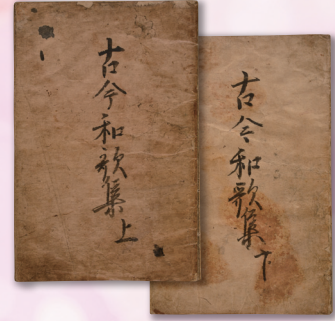 古今和歌集上
古今和歌集下